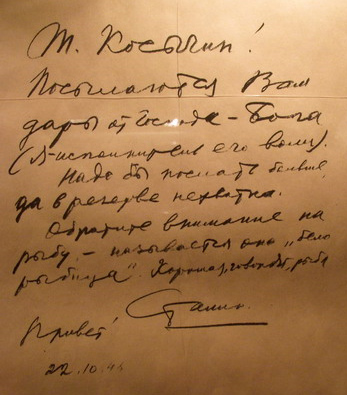 Т. Косыгин!
Посылаются Вам
дары от Господа – Бога
(Я – исполнитель его воли).
Надо бы послать больше,
да в резерве нехватка.
Обратите внимание на
рыбу, – называется она „бело-
рыбица“. Хорошая, говорят, рыба
Привет!
Сталин.
22.10.44